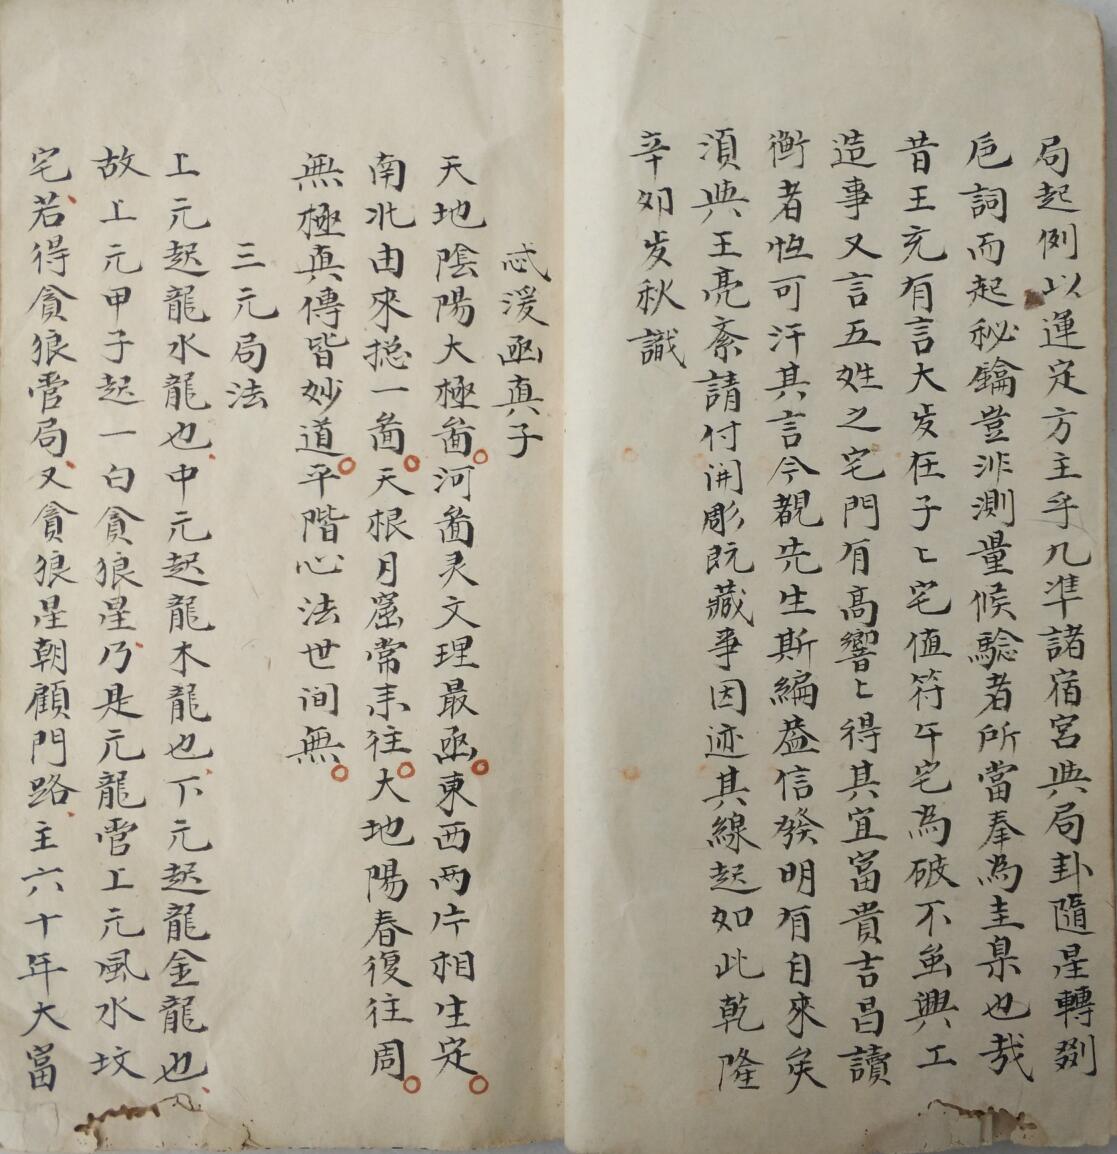 局起例以運定方主乎凡準諸宿宮典局卦隨星轉別
巵詞而起秘鑰豈非測量候驗者所當奉為圭臬也哉
昔王充有言大歲在子〻宅值符午宅為破不𠁅興工
造事又言五姓之宅門有高響〻得其宜富貴吉昌讀
衡者恒可汗其言今覩先生斯編益信發明有自來矣
湏典王亮紊請付開彫既藏事因迹其線起如此乾隆
辛卯歲秋識
忒湲𠀾真子
天地陰陽大極啚河啚灵文理最𠀾東西兩片相生定
南北由來捴一啚天根月窟常来往大地陽春復往周
無極真傳皆妙道平階心法世间無
三元局法
上元起龍水龍也中元起龍木龍也下元起龍金龍也
故上元甲子起一白貪狼星乃是元龍管上元風水坟
宅若得貪狼管局又貪狼星朝顧門路主六十年大富